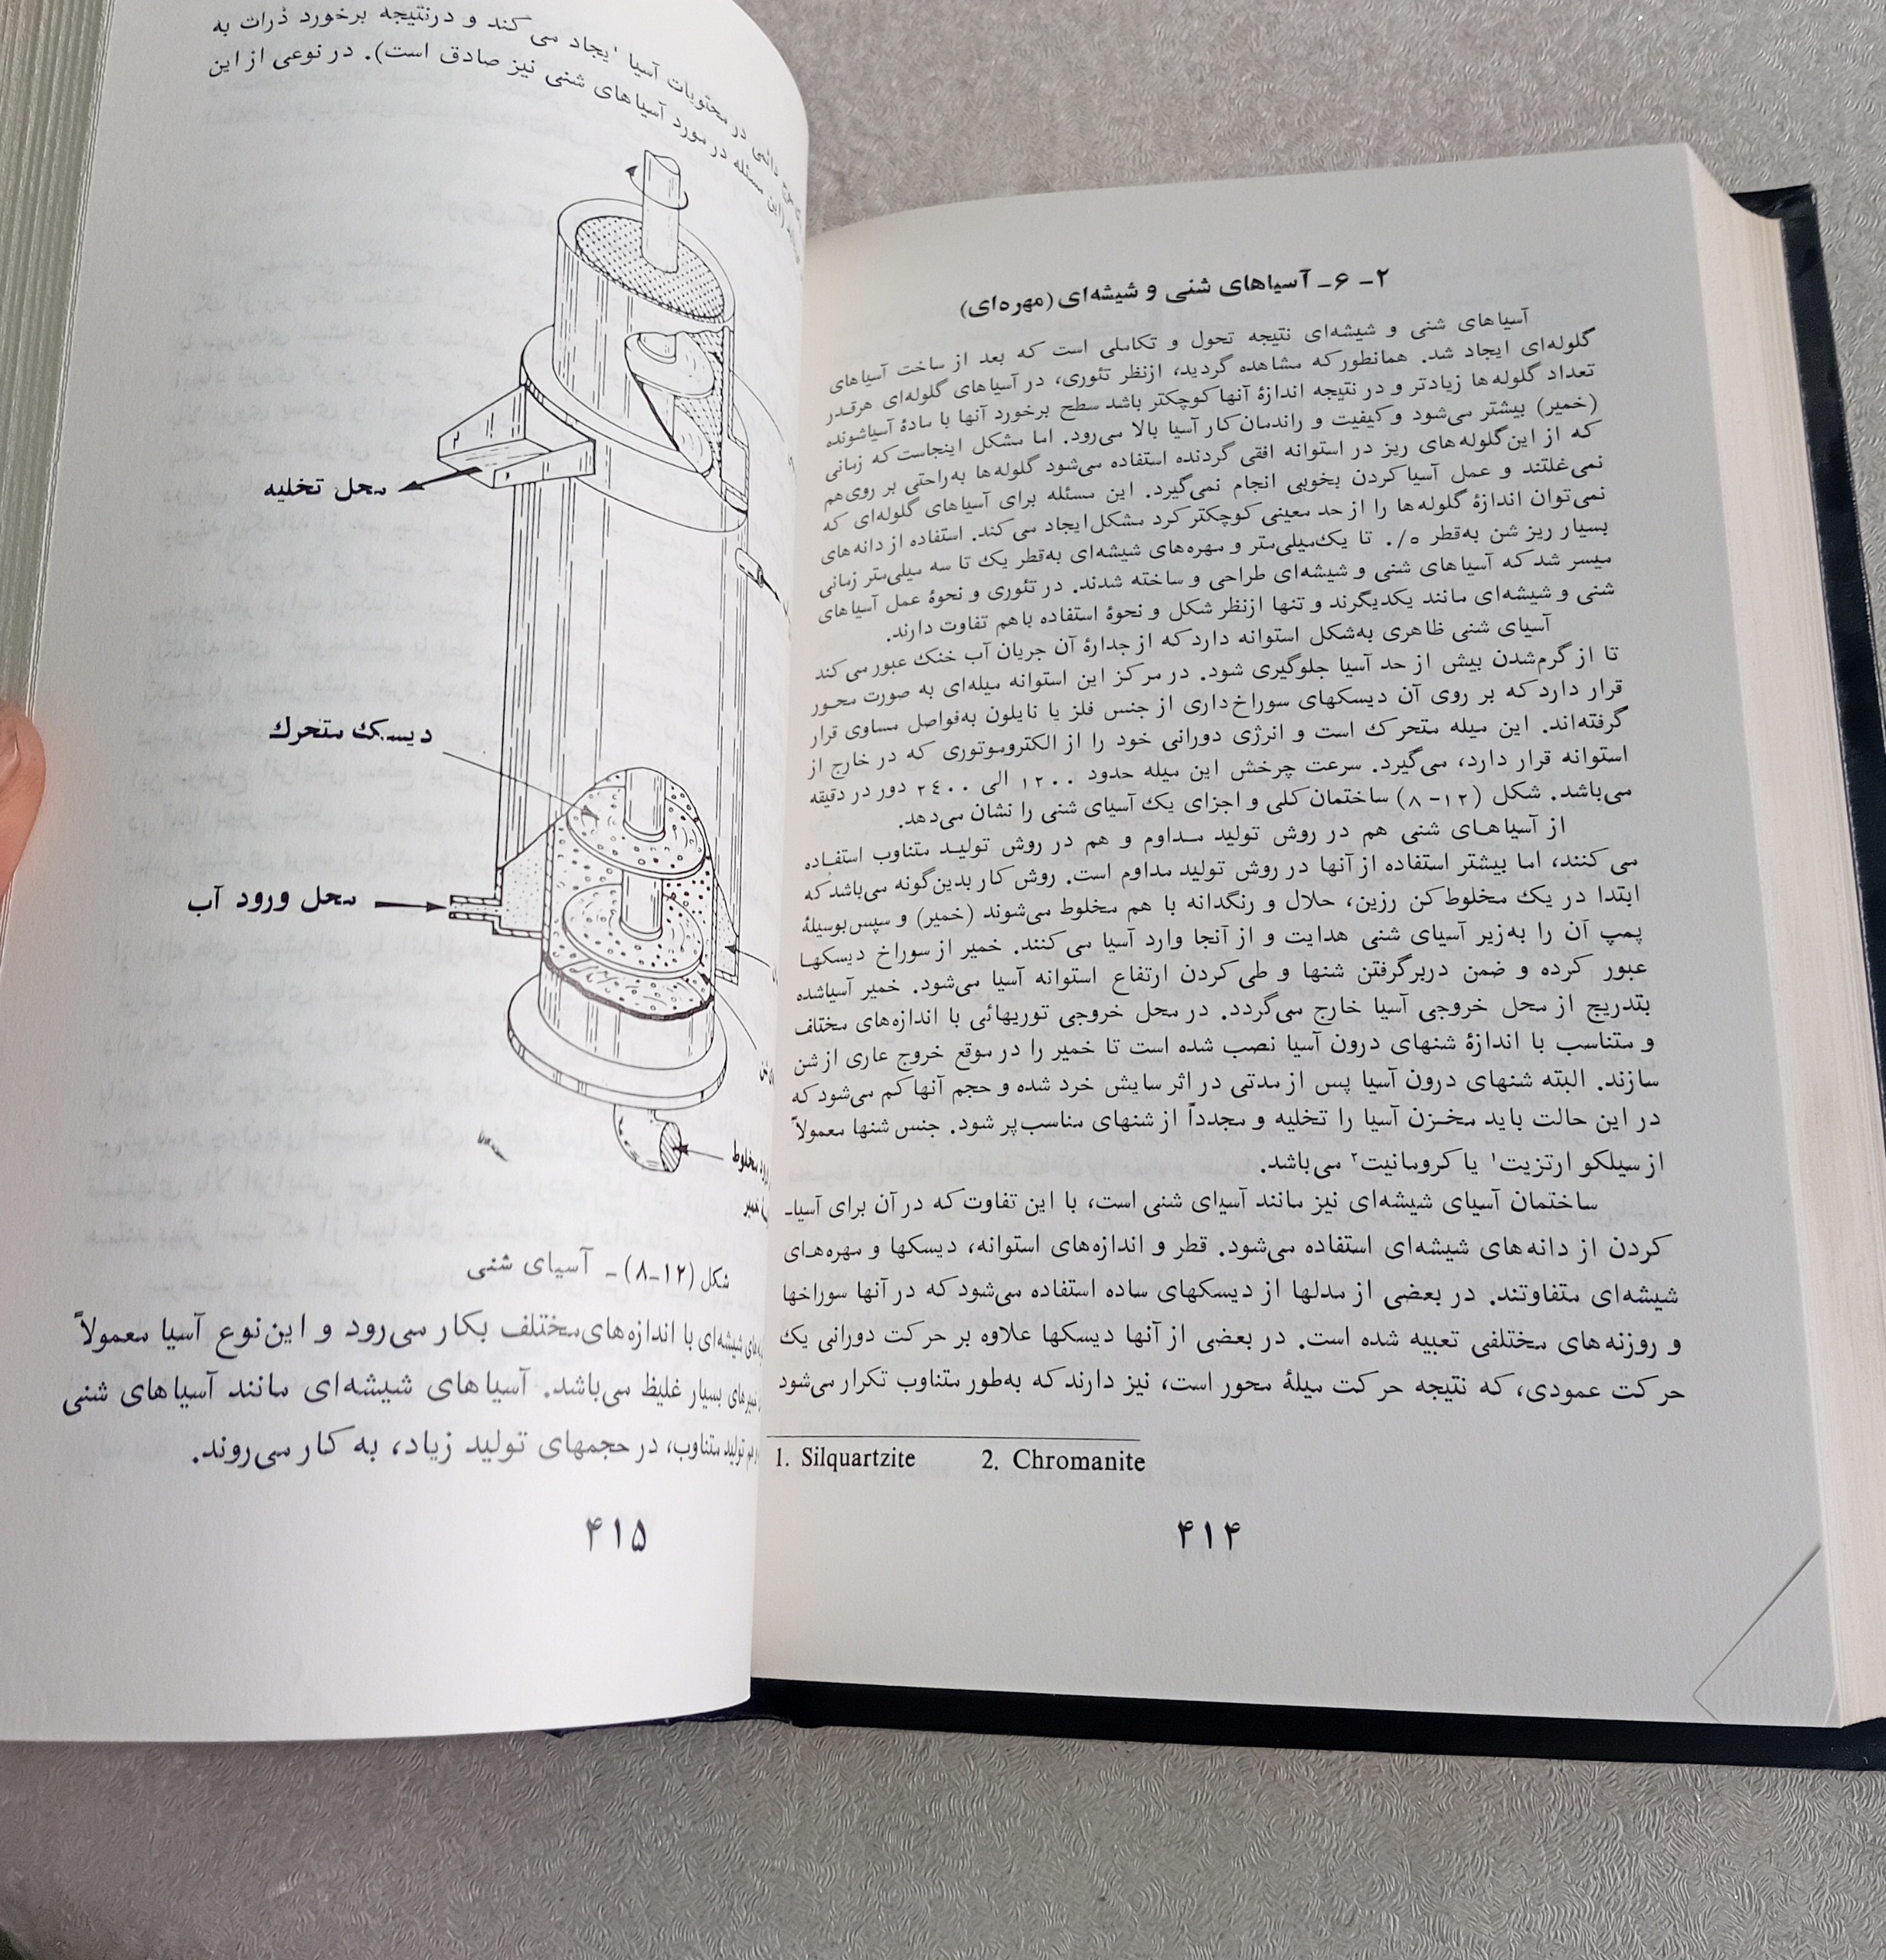 ۲- ۶- آسیاهای شنی و شیشه‌ای (مهره‌ای)
آسیاهای شنی و شیشه‌ای نتیجه تحول و تکاملی است که بعد از ساخت آسیاهای
گلوله‌ای ایجاد شد. همانطور که مشاهده گردید، ازنظر تئوری، در آسیاهای گلوله‌ای هرقدر
تعداد گلوله‌ها زیادتر و در نتیجه اندازهٔ آنها کوچکتر باشد سطح برخورد آنها با مادهٔ آسیاشونده
(خمیر) بیشتر می‌شود و کیفیت و راندمان کار آسیا بالا می‌رود. اما مشکل اینجاست که زمانی
که از این گلوله‌های ریز در استوانه افقی گردنده استفاده می‌شود گلوله‌ها به‌راحتی بر روی هم
نمی‌غلتند و عمل آسیا کردن بخوبی انجام نمی‌گیرد. این مسئله برای آسیاهای گلوله‌ای که
نمی‌توان اندازهٔ گلوله‌ها را از حد معینی کوچکتر کرد مشکل ایجاد می‌کند. استفاده از دانه‌های
بسیار ریز شن به‌قطر ۰/۵ تا یک‌میلی‌متر و مهره‌های شیشه‌ای به‌قطر یک تا سه میلی‌متر زمانی
میسر شد که آسیاهای شنی و شیشه‌ای طراحی و ساخته شدند. در تئوری و نحوهٔ عمل آسیاهای
شنی و شیشه‌ای مانند یکدیگرند و تنها ازنظر شکل و نحوهٔ استفاده باهم تفاوت دارند.
آسیای شنی ظاهری به‌شکل استوانه دارد که از جدارهٔ آن جریان آب خنک عبور می‌کند
تا از گرم‌شدن بیش از حد آسیا جلوگیری شود. در مرکز این استوانه میله‌ای به صورت محور
قرار دارد که بر روی آن دیسکهای سوراخ‌داری از جنس فلز یا نایلون به‌فواصل مساوی قرار
گرفته‌اند. این میله متحرک است و انرژی دورانی خود را از الکتروموتوری که در خارج از
استوانه قرار دارد، می‌گیرد. سرعت چرخش این میله حدود ۱۲۰۰ الی ۲۴۰۰ دور در دقیقه
می‌باشد. شکل (۱۲-۸) ساختمان کلی و اجزای یک آسیای شنی را نشان می‌دهد.
از آسیاهای شنی هم در روش تولید مداوم و هم در روش تولید متناوب استفاده
می‌کنند، اما بیشتر استفاده از آنها در روش تولید مداوم است. روش کار بدین‌گونه می‌باشد که
ابتدا در یک مخلوط‌کن رزین، حلال و رنگدانه با هم مخلوط می‌شوند (خمیر) و سپس بوسیلهٔ
پمپ آن را به‌زیر آسیای شنی هدایت و از آنجا وارد آسیا می‌کنند. خمیر از سوراخ دیسکها
عبور کرده و ضمن دربرگرفتن شنها و طی کردن ارتفاع استوانه آسیا می‌شود. خمیر آسیاشده
بتدریج از محل خروجی آسیا خارج می‌گردد. در محل خروجی توریهائی با اندازه‌های مختلف
و متناسب با اندازهٔ شنهای درون آسیا نصب شده است تا خمیر را در موقع خروج عاری از شن
سازند. البته شنهای درون آسیا پس از مدتی در اثر سایش خرد شده و حجم آنها کم می‌شود که
در این حالت باید مخزن آسیا را تخلیه و مجدداً از شنهای مناسب پر شود. جنس شنها معمولاً
از سیلکو ارتزیت۱ یا کرومانیت۲ می‌باشد.
ساختمان آسیای شیشه‌ای نیز مانند آسیای شنی است، با این تفاوت که در آن برای آسیا-
کردن از دانه‌های شیشه‌ای استفاده می‌شود. قطر و اندازه‌های استوانه، دیسکها و مهره‌های
شیشه‌ای متفاوتند. در بعضی از مدلها از دیسکهای ساده استفاده می‌شود که در آنها سوراخها
و روزنه‌های مختلفی تعبیه شده است. در بعضی از آنها دیسکها علاوه بر حرکت دورانی یک
حرکت عمودی، که نتیجه حرکت میلهٔ محور است، نیز دارند که به‌طور متناوب تکرار می‌شود
1. Silquartzite 2. Chromanite
۴۱۴
دائمی در محتویات آسیا ایجاد می‌کند و درنتیجه برخورد ذرات به
(این مسئله در مورد آسیاهای شنی نیز صادق است). در نوعی از این
محل تخلیه
دیسک متحرک
محل ورود آب
مخلوط
شکل (۱۲-۸)- آسیای شنی
شیشه‌ای با اندازه‌های مختلف بکار می‌رود و این نوع آسیا معمولاً
بسیار غلیظ می‌باشد. آسیاهای شیشه‌ای مانند آسیاهای شنی
تولید متناوب، در حجمهای تولید زیاد، به کار می‌روند.
۴۱۵